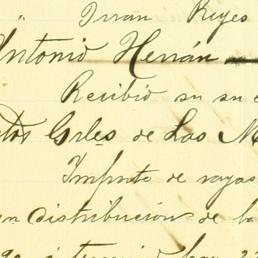 " Irran Reyes
Antonio Herrán
Recibio su su
Grles de Las M
Impute de rayas
en distribucion de la